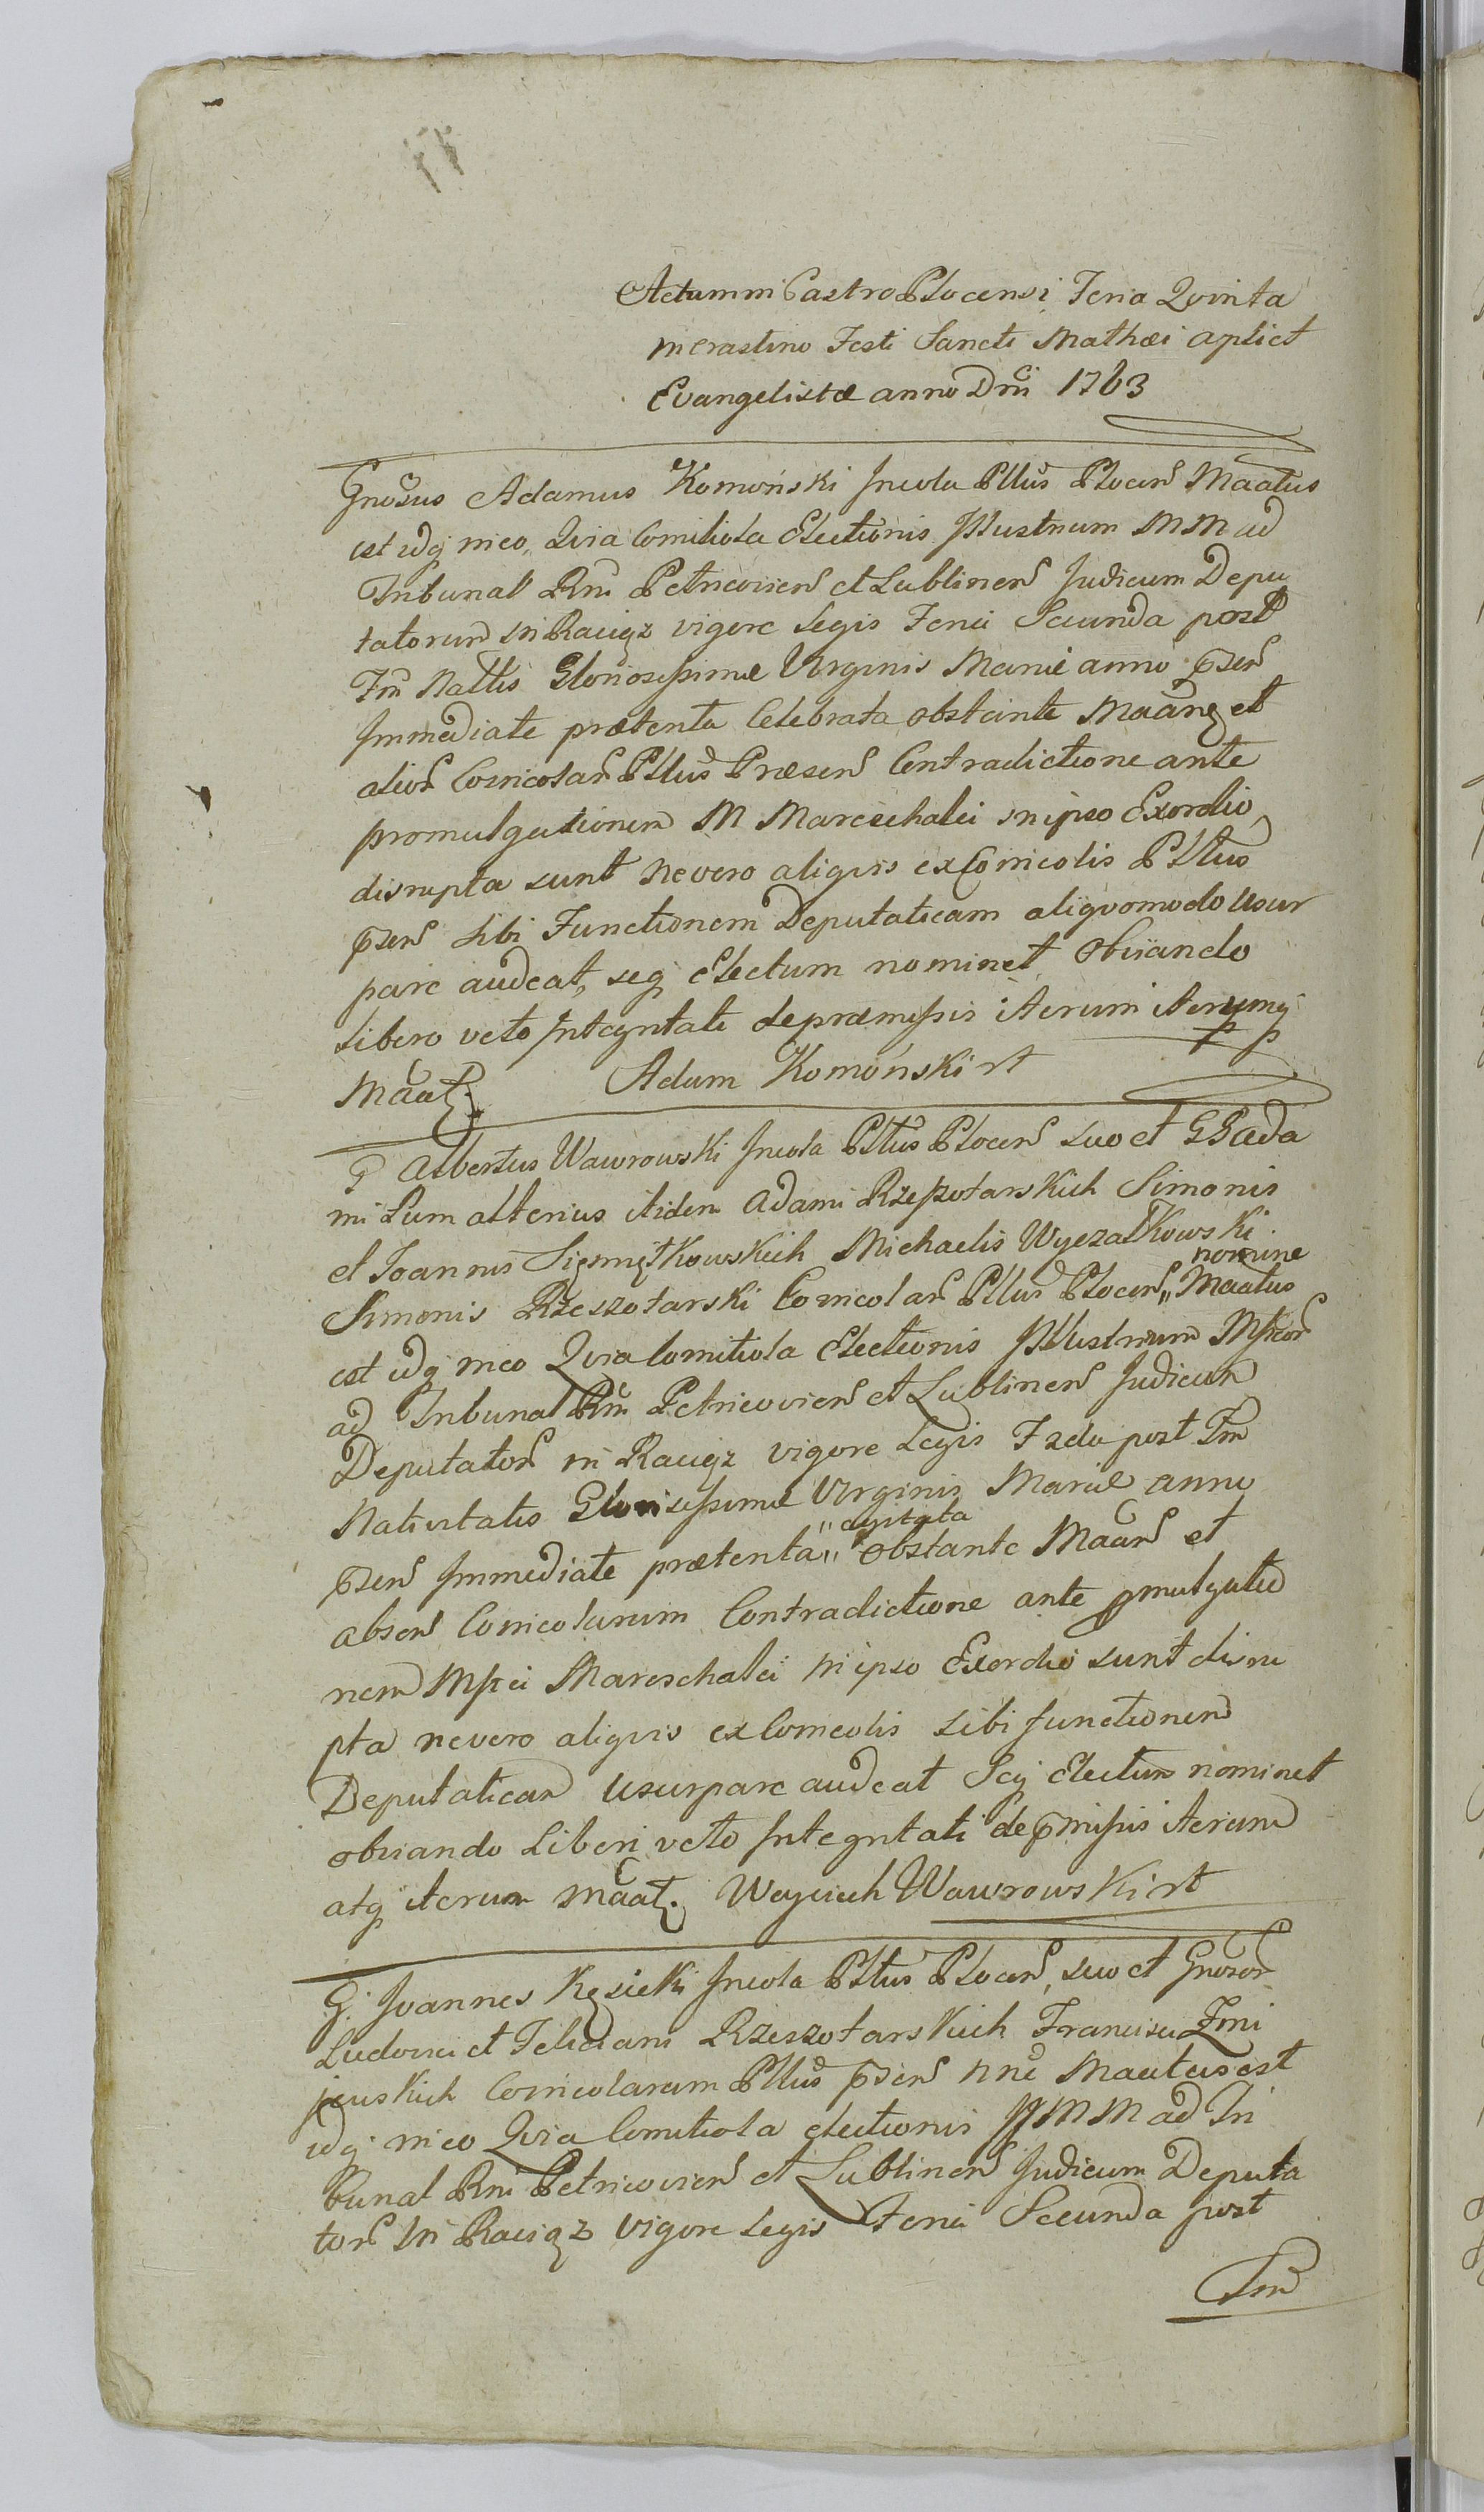 Actum in Castro Plocensi Feria Qvinta
in crastino Festi Sancti Mathæi Apli et
Evangelistæ anno Dni 1763
Gnosus Adamus Komoński Incola Pttus Plocens Maatus
est idq in eo, Qvia Comitiola Electionis Illustrium MM ad
Tribunal Rni Petricoviens et Lublinens Judicum Depu
tatorum in Raciąz vigore Legis Feria Secunda post
Fm Nattis Gloriosissimæ Virginis Mariæ anno psen
Immediate prætenta Celebrata obstante Maanq et
alior Coincolar Pttus Præsens Contradictione ante
promulgationem M Mareschalci in ipso Exordio
disrupta sunt ne vero aliqvis ex Coincolis Pttus
psen sibi Functionem Deputaticam aliqvomodo usur
pare audeat, seq Electum nominet, obviando
Libero veto Integritati de præmissis iterum iterumq
Maat. Adam Komoński rt
G Albertus Wawrowski Incola Pttus Plocens suo et GG Ada
mi Lum alterius itidem Adami Rzeszotarskich Simonis
et Joannis Sięmiątkowskich Michaelis Wyczałkowski
Simonis Rzeszotarski Coincolar Pttus Plocens " nomine Maatus
est idq in eo Qvia Comitiola Electionis Illustrium Mficor
ad Tribunal Rni Petricoviens et Lublinens Judicum
Deputator in Raciąz vigore Legis F 2da post Fm
Nativitatis Gloriosissimæ Virginis Mariæ anno
psen Immediate prætenta " agitata obstante Maan et
absen Coincolarum Contradictione ante pmulgatio
nem Mfici Mareschalci in ipso Exordio sunt disru
pta ne vero aliqvis ex Coincolis sibi functionem
Deputaticam usurpare audeat Seq Electum nominet
obviando Liberi veto Integritati de pmissis iterum
atq iterum Maat. Woyciech Wawrowski rt
G. Joannes Kęsicki Incola Pttus Plocens, suo et Gnosor
Ludovici et Feliciani Rzeszotarskich Francisci Zmi
jeuskich Coincolarum Pttus psen nne Maatus est
idq in eo Qvia Comitiola electionis JJ MM ad Tri
bunal Rni Petricoviens et Lublinens Judicum Deputa
tor in Raciąz vigore Legis Feria Secunda post
Fm